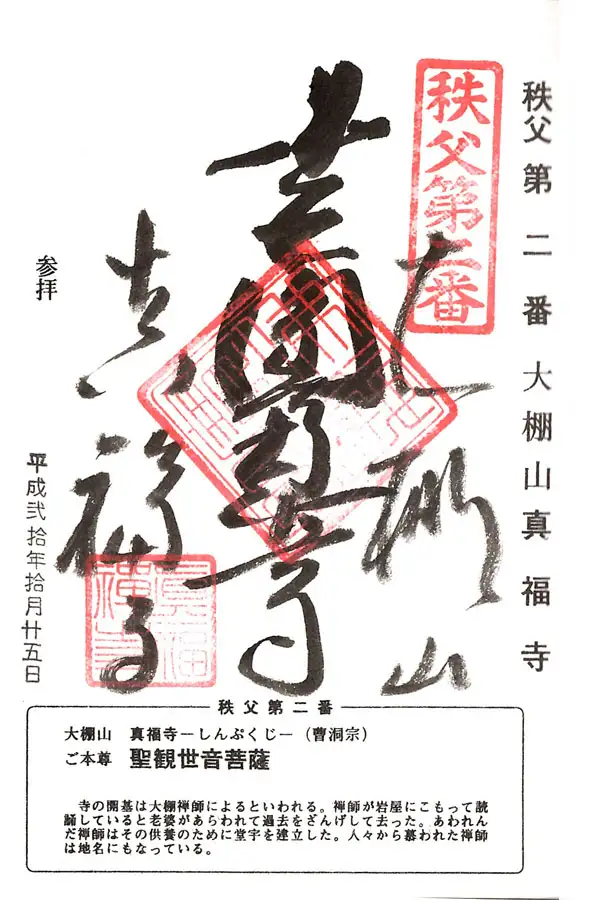 秩父第二番 大棚山 真福寺
秩父第二番
大棚山
真福寺
参拝
平成弐拾年拾月廿五日
真福
禅寺
秩父第二番
大棚山 真福寺ーしんぷくじー(曹洞宗)
ご本尊 聖観世音菩薩
寺の開基は大棚禅師によるといわれる。禅師が岩屋にこもって読
誦していると老婆があらわれて過去をざんげして去った。あわれん
だ禅師はその供養のために堂宇を建立した。人々から慕われた禅師
は地名にもなっている。